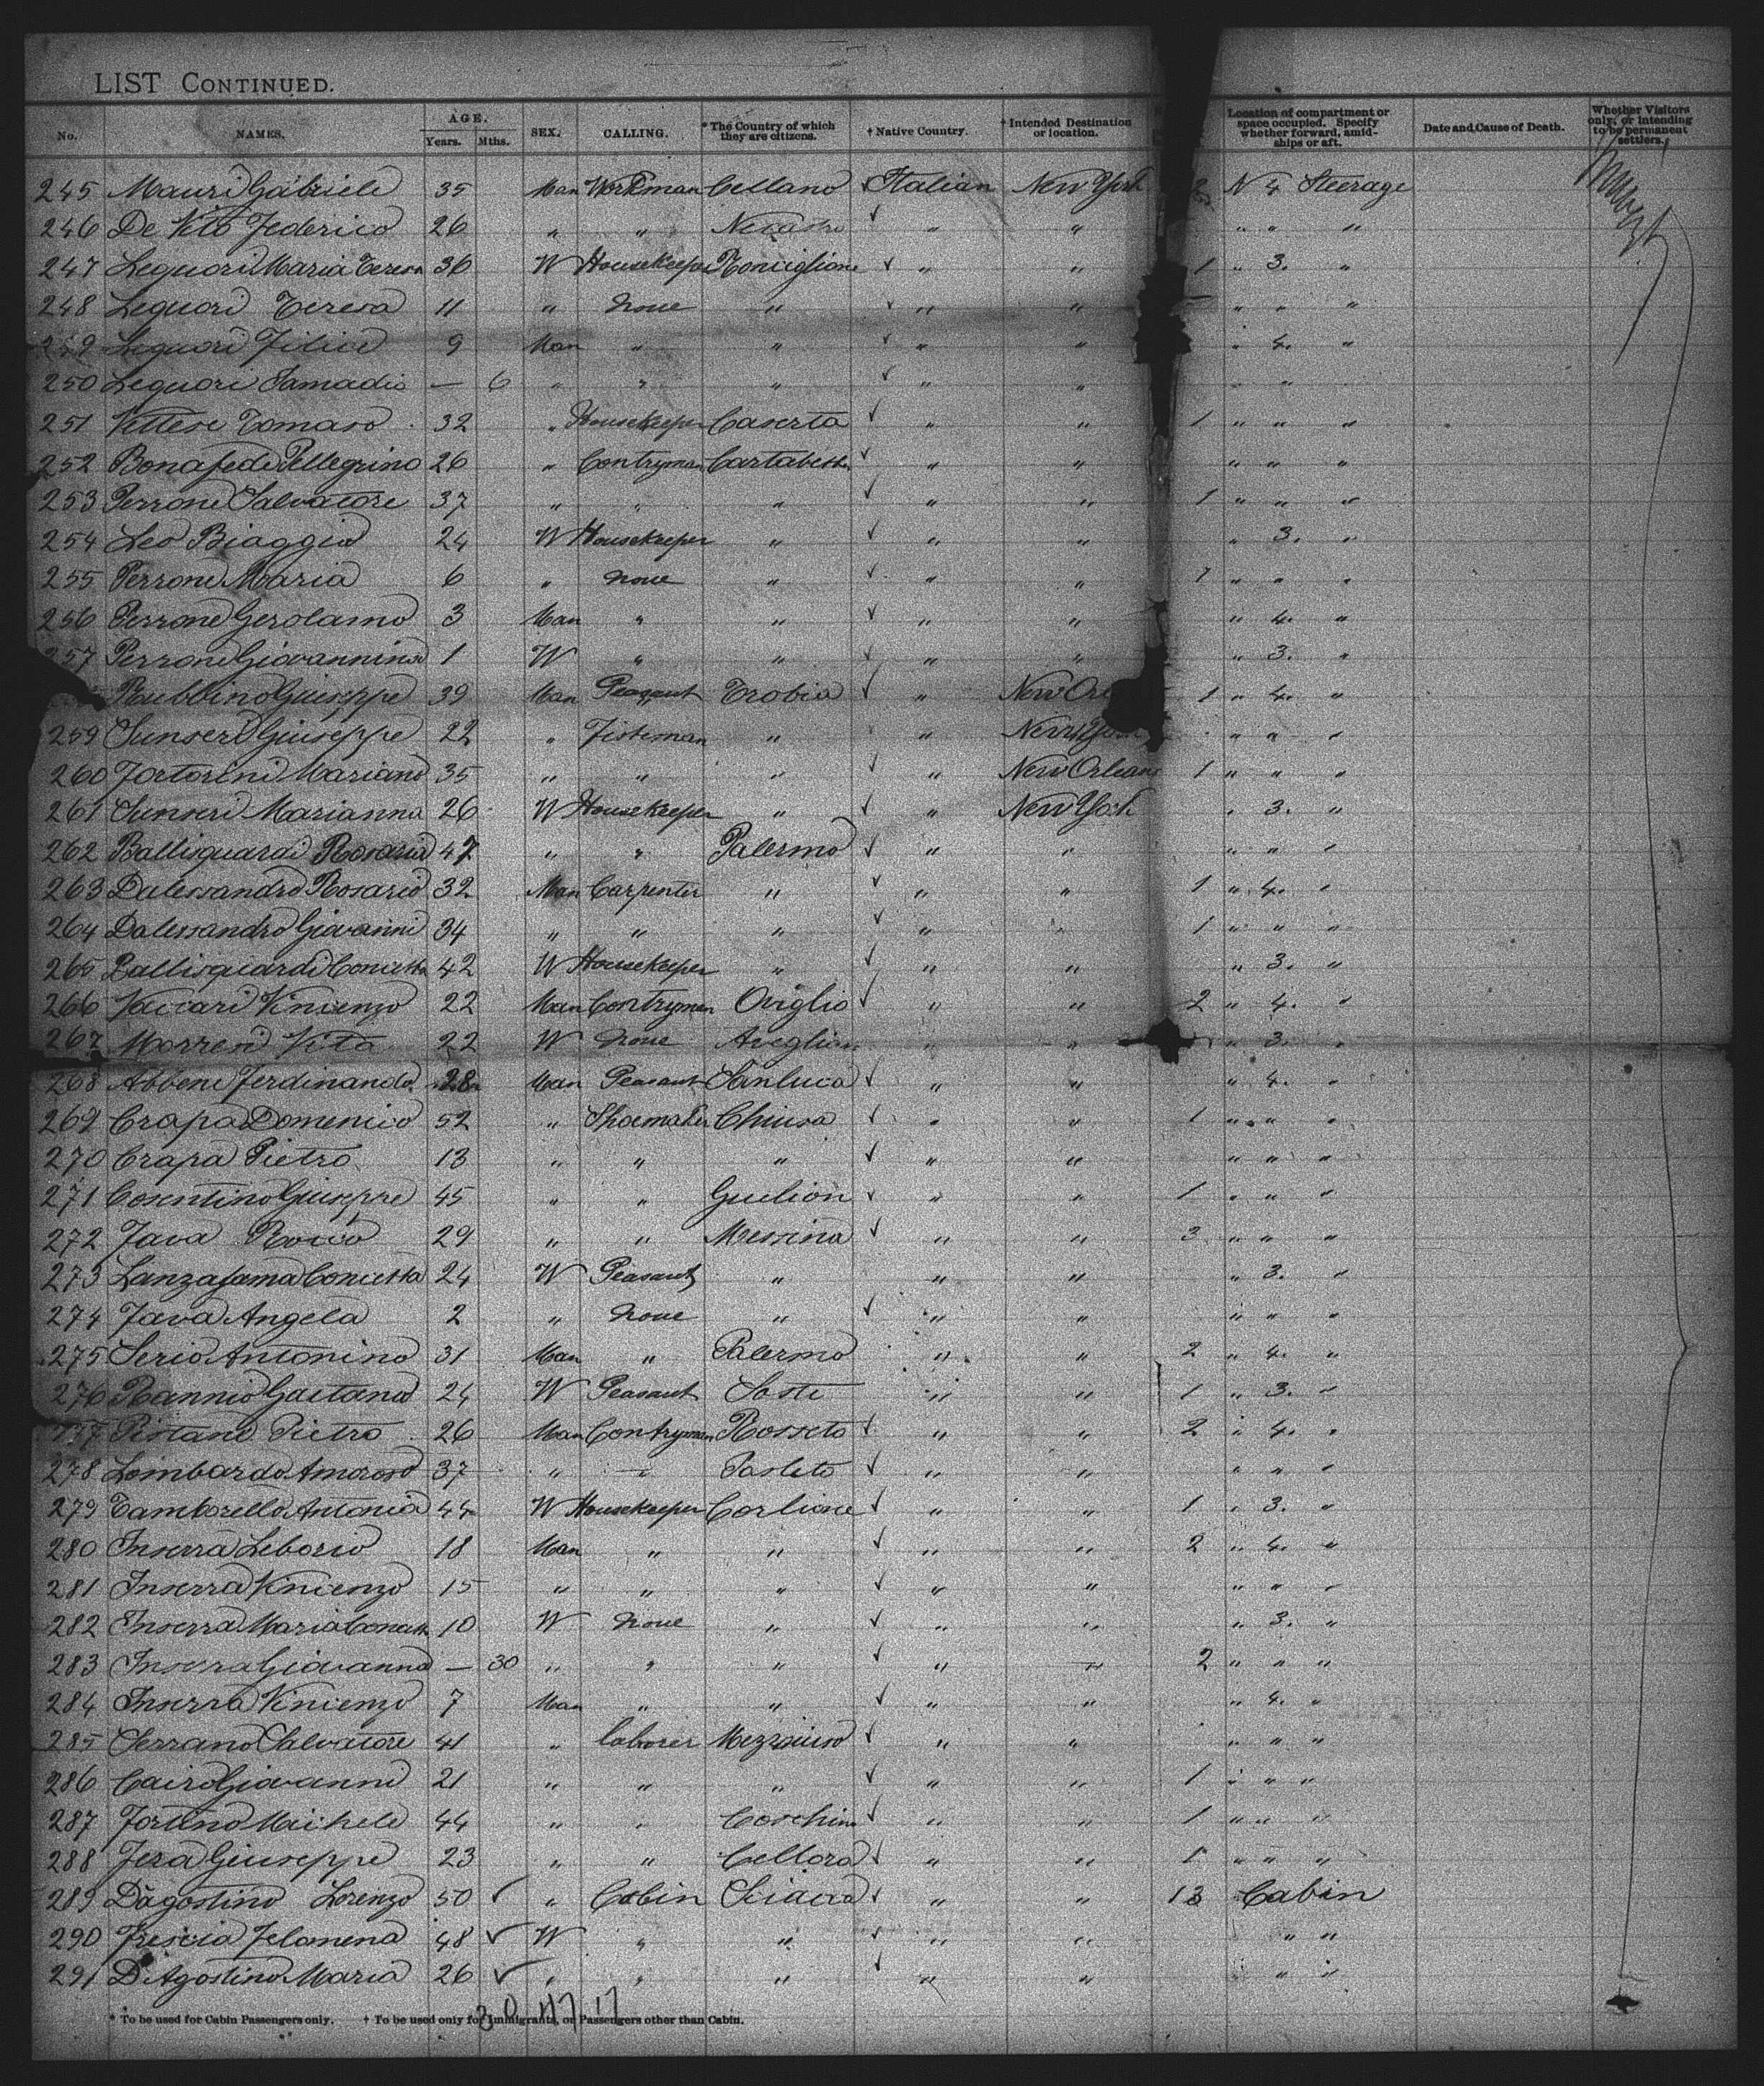 LIST CONTINUED.
No. NAMES. AGE. Years. Mths. SEX. CALLING. * The Country of which they are citizens. † Native Country. † Intended Destination or location. Location of compartment or space occupied. Specify whether forward, amidships or aft. Date and Cause of Death. Whether Visitors only, or intending to be permanent settlers.
245 Mauri Gabriele 35 Man Workman Cellano Italian New York 2 N 4 Steerage
246 De Vito Federico 26 " " Nicastro " " " " "
247 Leguori Maria Teresa 36 W Housekeeper Ronciglione " " 1 " 3. "
248 Leguori Teresa 11 " None " " " " " "
249 Leguori Felice 9 Man " " " " " 4. "
250 Leguori Samadio — 6 " " " " " " "
251 Vettese Tomaso 32 " Housekeeper Caserta " " 1 " " "
252 Bonafede Pellegrino 26 " Contryman " " " " "
253 Perrone Salvatore 37 " " " " " 1 " " "
254 Leo Biaggio 24 W Housekeeper " " " " 3. "
255 Perrone Maria 6 " None " " " 1 " " "
256 Perrone Gerolamo 3 Man " " " " " 4. "
257 Perrone Giovannina 1 W " " " " " 3. "
Rubbino Giuseppe 39 Man Peasant Trobia " New Orl 1 " 4. "
259 Sunseri Giuseppe 22 " Fisteman " " New York " " "
260 Fortorini Mariano 35 " " " " New Orleans 1 " " "
261 Sunseri Marianna 26 W Housekeeper " " New York " 3. "
262 Ballisguardi Rosaria 47 " " Palermo " " " " "
263 Dalessandro Rosario 32 Man Carpenter " " " 1 " 4. "
264 Dalessandro Giovanni 34 " " " " " 1 " " "
265 Ballisguardi Concetta 42 W Housekeeper " " " " 3. "
266 Vaccari Vincenzo 22 Man Contryman Oviglio " " 2 " 4. "
267 Morresi Vita 22 W None Aveglian " " " 3. "
268 Abbene Ferdinando 28 Man Peasant Sanluca " " " 4. "
269 Crapa Domenico 52 " Shoemaker Chiusa " " 1 " " "
270 Crapa Pietro 13 " " " " " " " "
271 Cosentino Giuseppe 45 " " Guilion " " 1 " " "
272 Fava Rocco 29 " " Messina " " 3 " " "
273 Lanzafama Concetta 24 W Peasant " " " " 3. "
274 Fava Angela 2 " None " " " " " "
275 Serio Antonino 31 Man " Palermo " " 2 " 4. "
276 Rannio Gaetana 24 W Peasant Soste " " 1 " 3. "
277 Pistane Pietro 26 Man Contryman Rosseto " " 2 " 4. "
278 Lombardo Amoroso 37 " " Pasleto " " " " "
279 Tamborello Antonia 44 W Housekeeper Corlione " " 1 " 3. "
280 Inserra Leborio 18 Man " " " " 2 " 4. "
281 Inserra Vincenzo 15 " " " " " " " "
282 Inserra Maria Concetta 10 W None " " " " 3. "
283 Inserra Giovanna — 30 " " " " " 2 " " "
284 Inserra Vincenzo 7 Man " " " " " 4. "
285 Serrano Salvatore 41 " laborer Mezzoiuso " " " " "
286 Cairo Giovanni 21 " " " " " 1 " " "
287 Fortino Michele 44 " " Coschina " " 1 " " "
288 Fera Giuseppe 23 " " Cellora " " 1 " " "
289 Dagostino Lorenzo 50 " Cabin Sciacca " " 13 Cabin
290 Friscia Filomena 48 W " " " " " "
291 D'Agostino Maria 26 " " " " " " "
* To be used for Cabin Passengers only. † To be used only for Immigrants, or Passengers other than Cabin.